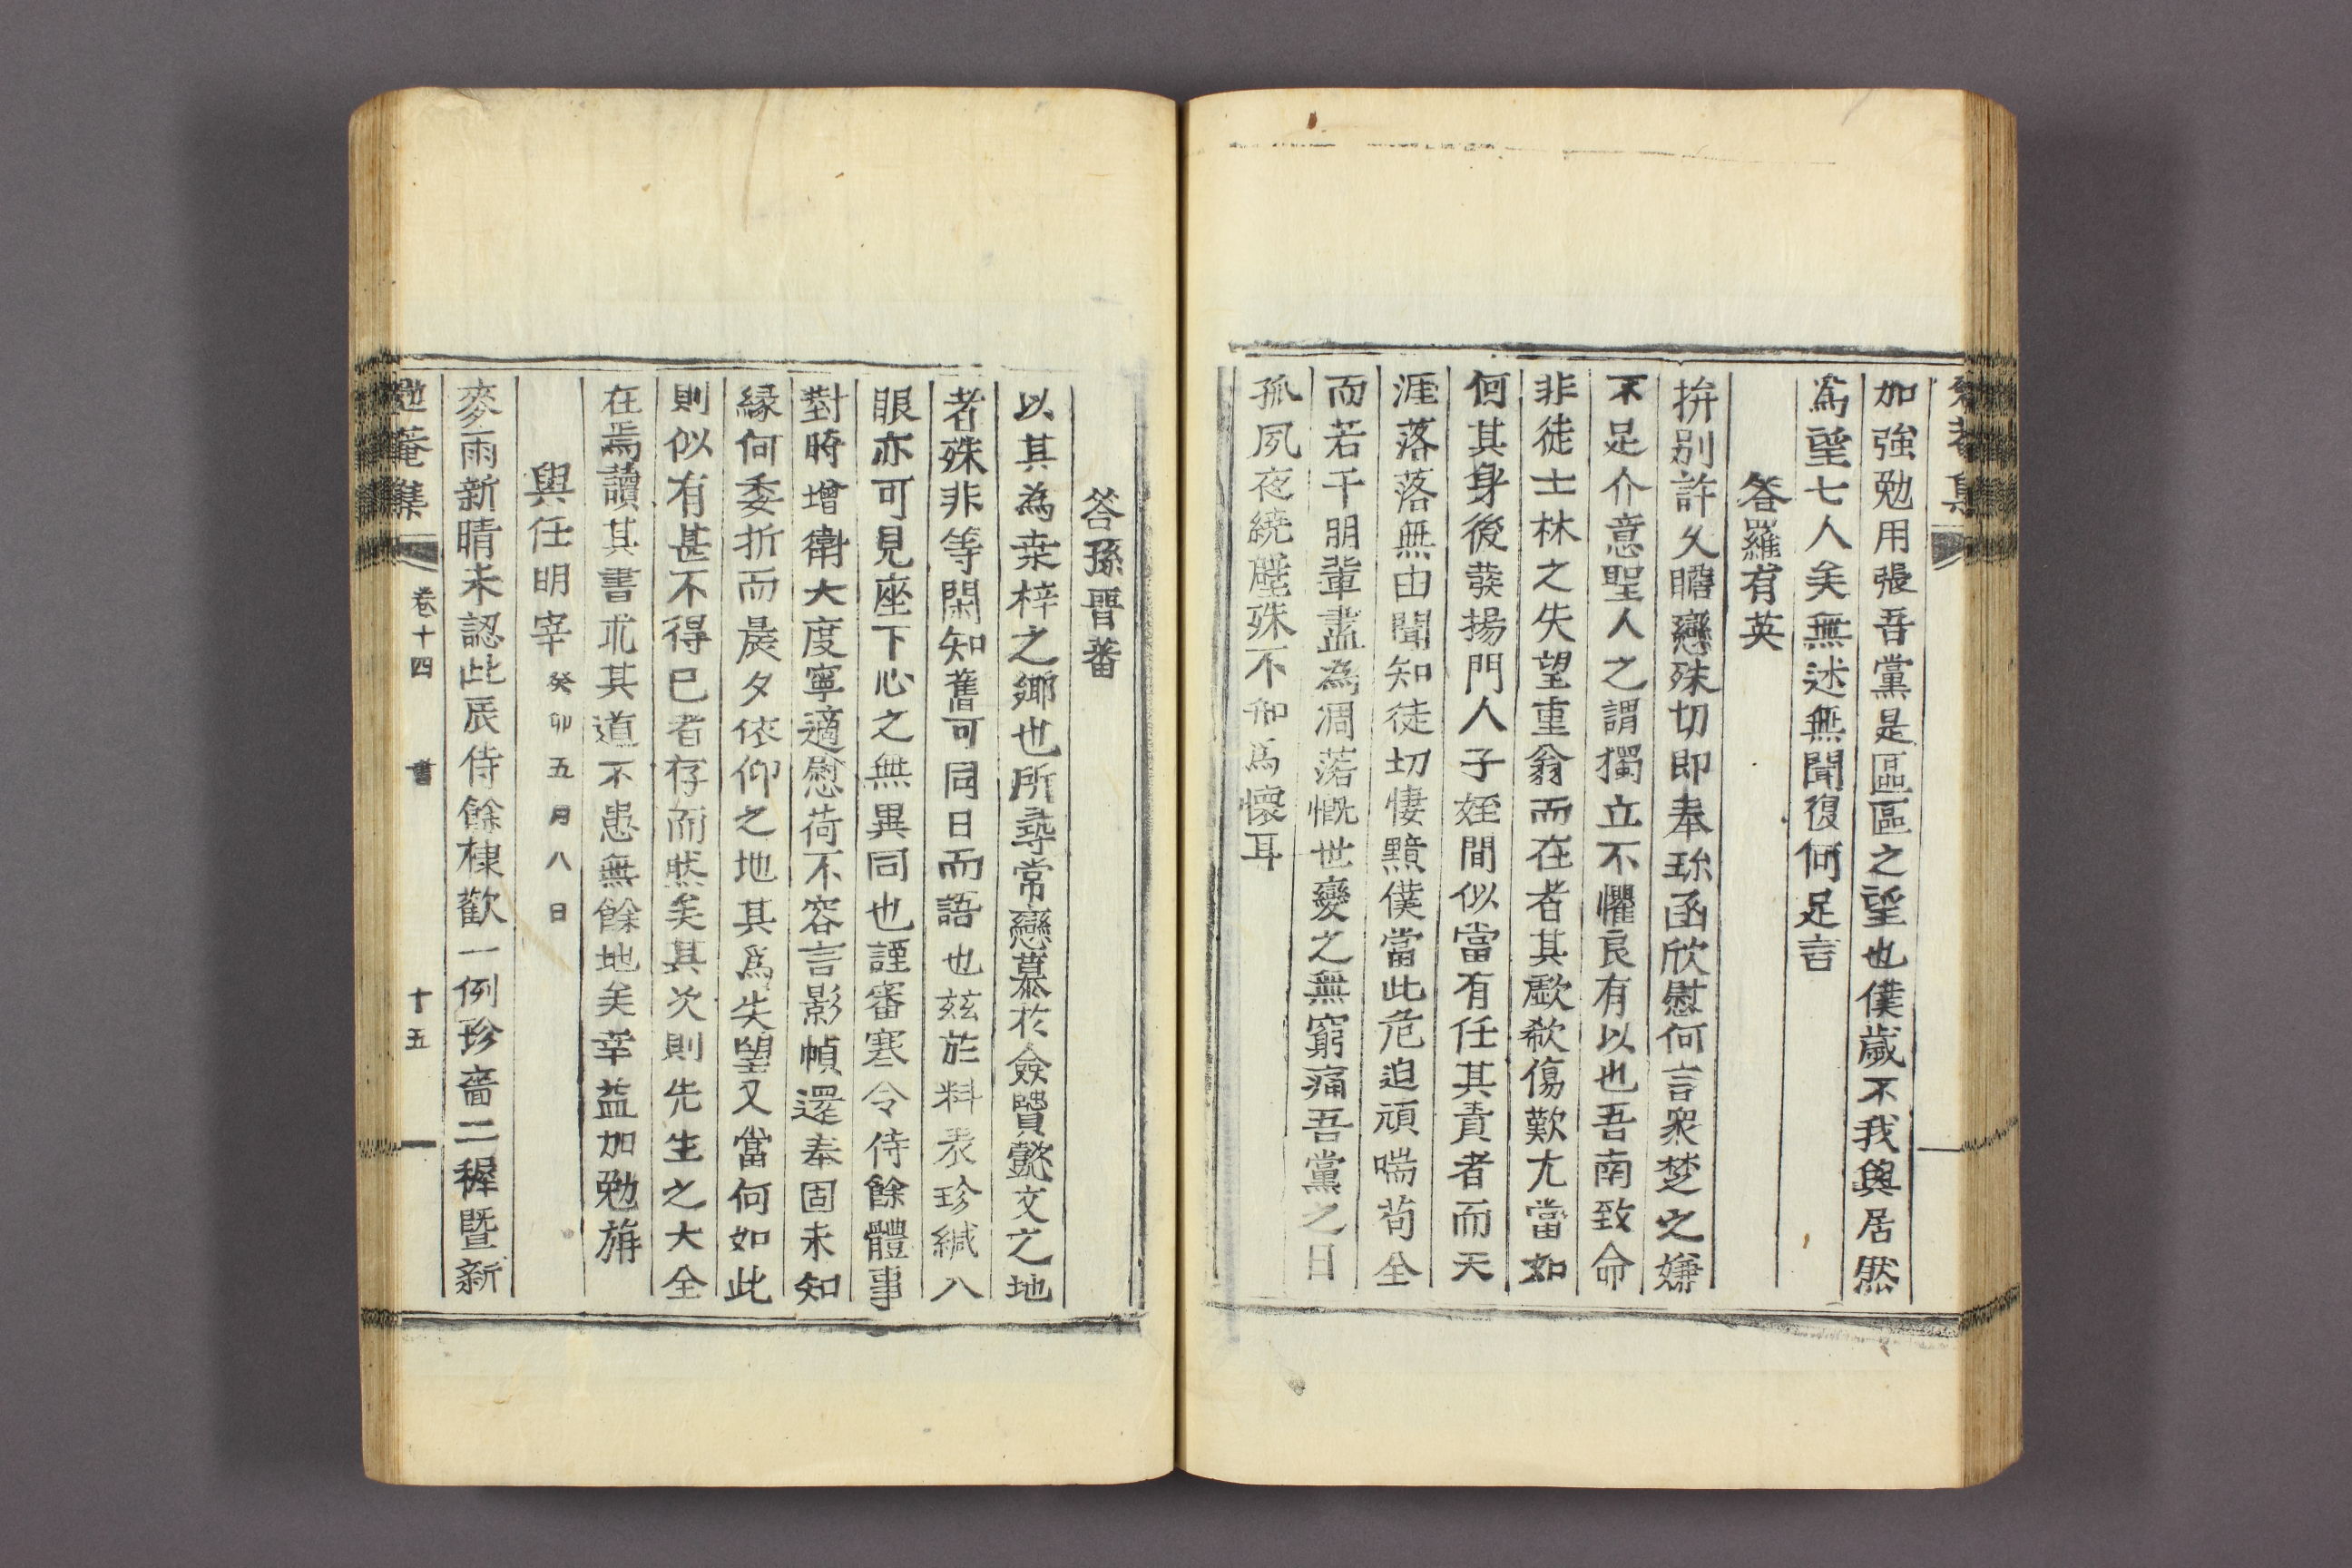 加強勉用張吾黨是區區之望也僕歲不我與居然
爲望七人矣無述無聞復何足言
答羅有英
拚別許久瞻戀殊切即奉珎函欣慰何言衆楚之嫌
不足介意聖人之謂獨立不懼良有以也吾南致命
非徒士林之失望重翁而在者其歔欷傷歎尤當如
何其身後發揚門人子姪間似當有任其責者而天
涯落落無由聞知徒切悽黯僕當此危迫頑喘苟全
而若干朋輩盡為凋落慨世變之無窮痛吾黨之日
孤夙夜繞壁殊不知爲懷耳
答孫晋蕃
以其為桒梓之鄉也所尋常戀慕於僉贒懿文之地
者殊非等閑知舊可同日而語也玆於料表珍緘入
眼亦可見座下心之無異同也謹審寒令侍餘體事
對時增衛大度寧適慰荷不容言影幀還奉固未知
緣何委折而晨夕依仰之地其爲失望又當何如此
則似有甚不得已者存而然矣其次則先生之大全
在焉讀其書求其道不患無餘地矣幸益加勉旃
與任明宰 癸卯五月八日
麥雨新晴未認此辰侍餘棣歡一例珍嗇二穉曁新
勉菴集 卷十四 書 十五